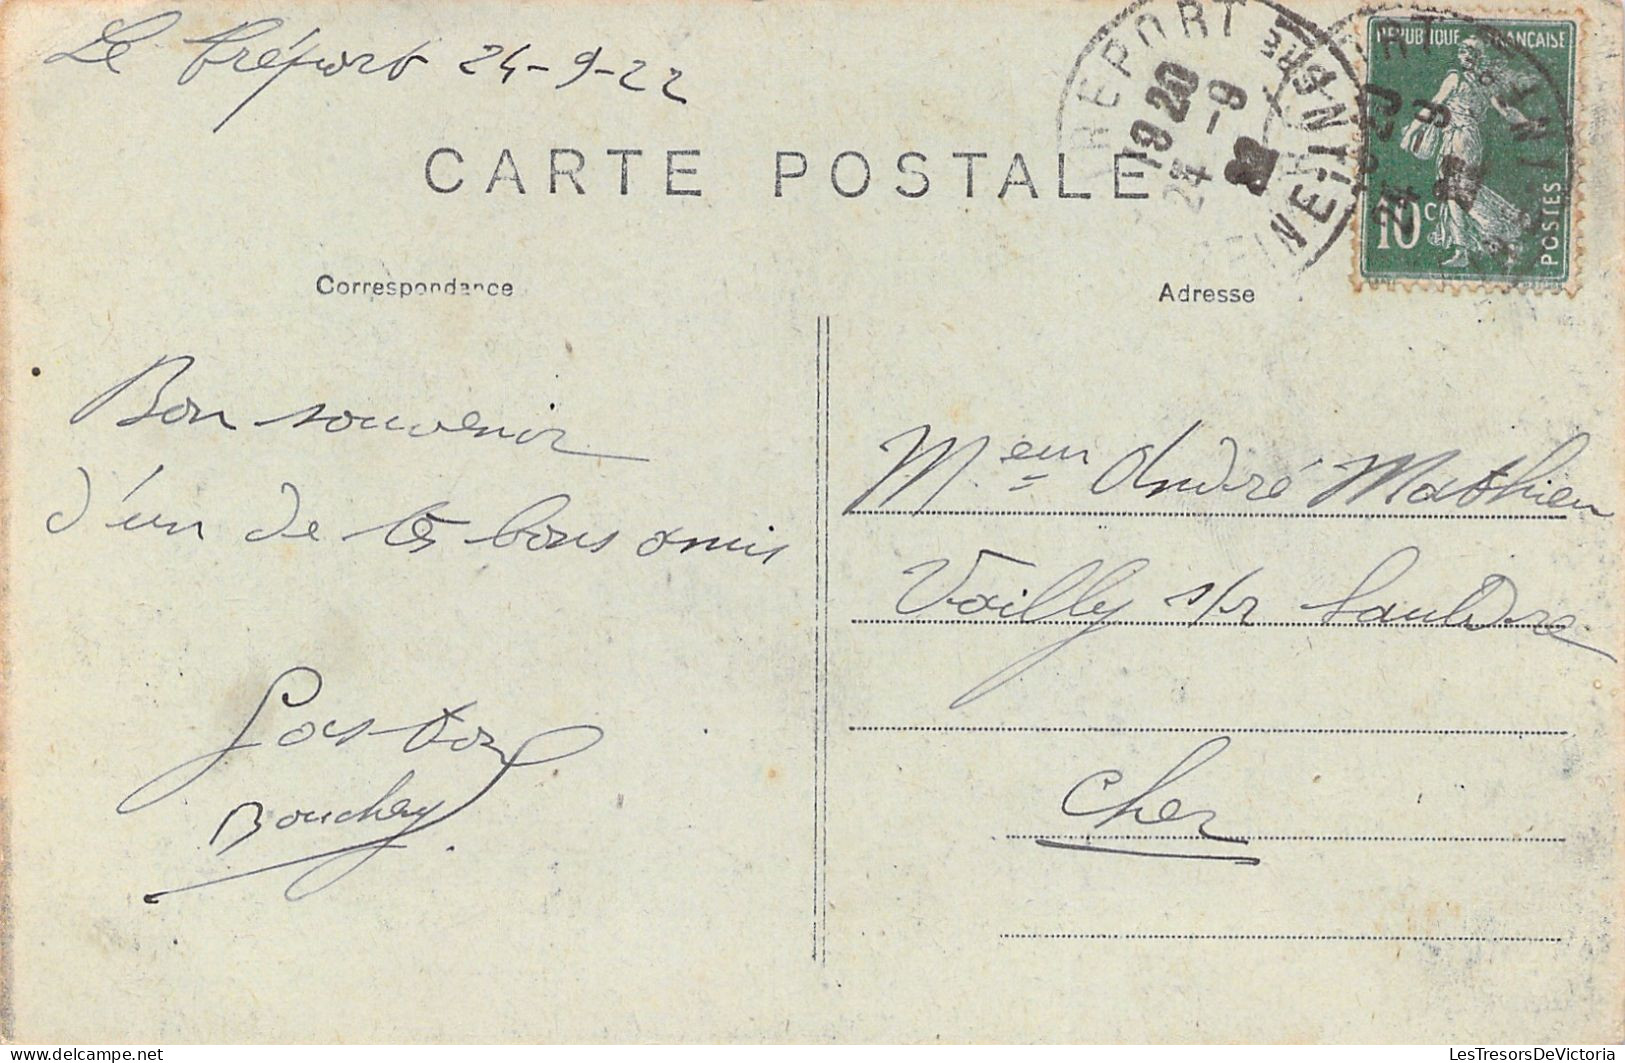 Le Tréport 24-9-22
CARTE POSTALE
Correspondance
Adresse
RÉPUBLIQUE FRANÇAISE
10c
POSTES
TREPORT
19 20
24 -9
22
SEINE INFRE
Bon souvenir
d'un de tes bons amis
Gaston
Bouchey
Meur André Mathieu
Vailly s/r Sauldre
Cher
LesTresorsDeVictoria